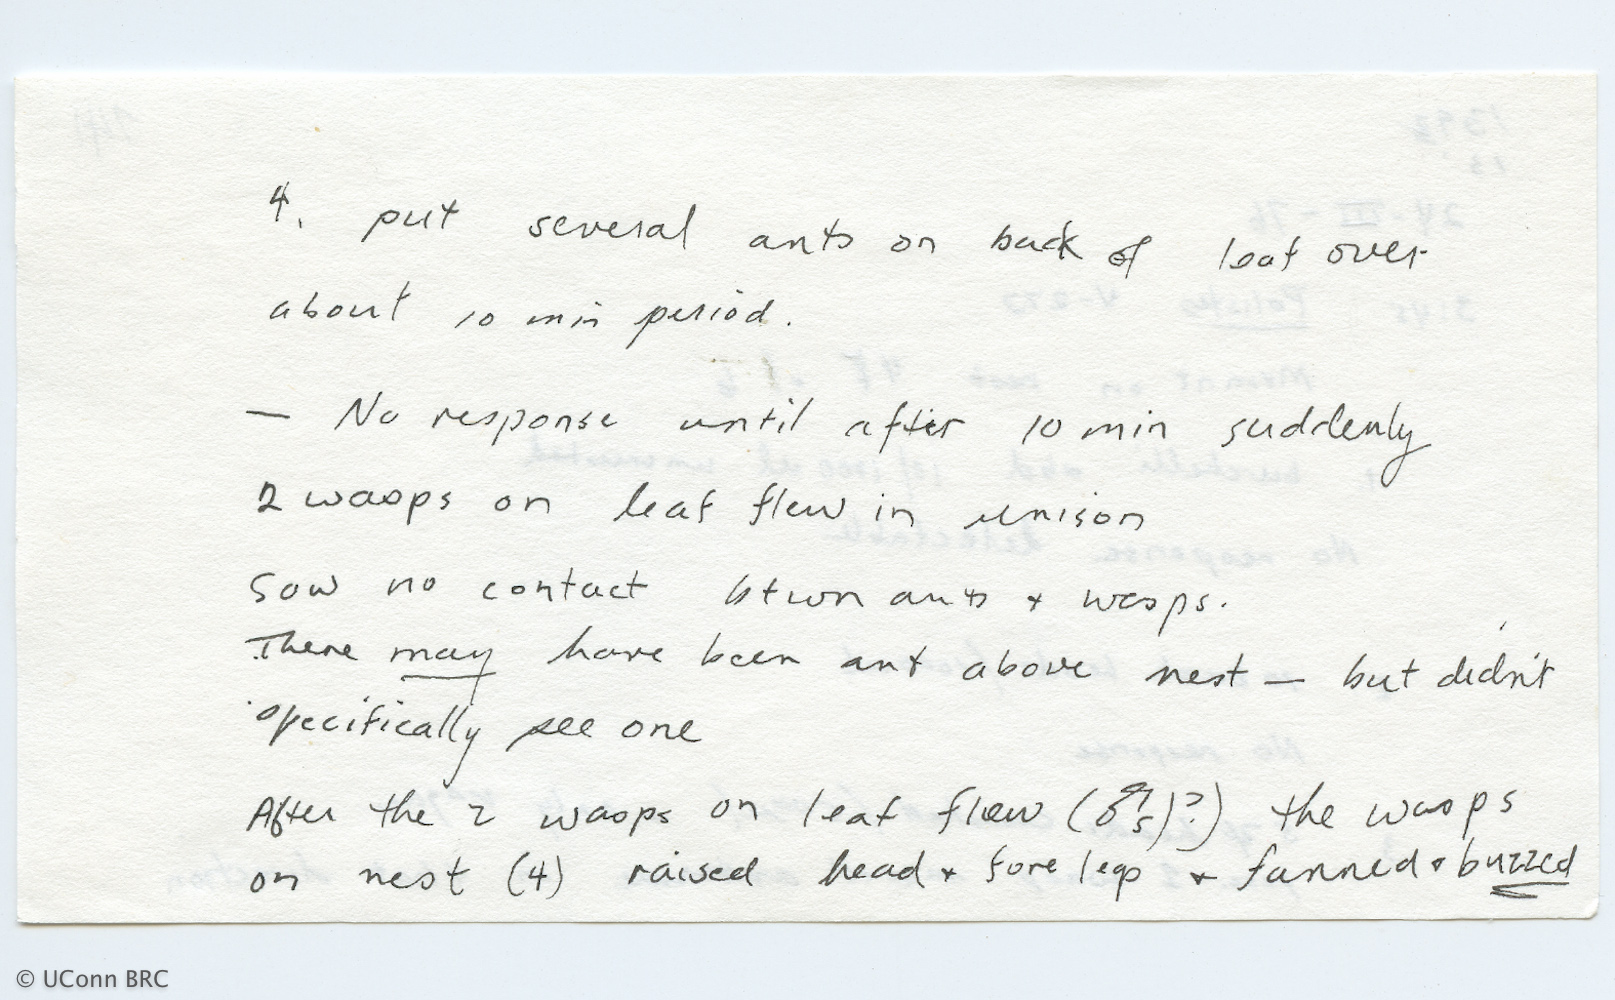 4. put several ants on back of leaf over
about 10 min period.
— No response until after 10 min suddenly
2 wasps on leaf flew in unison
Saw no contact btwn ants + wasps.
There may have been ant above nest — but didn't
specifically see one
After the 2 wasps on leaf flew (♂s)?) the wasps
on nest (4) raised head + fore legs + fanned + buzzed
© UConn BRC